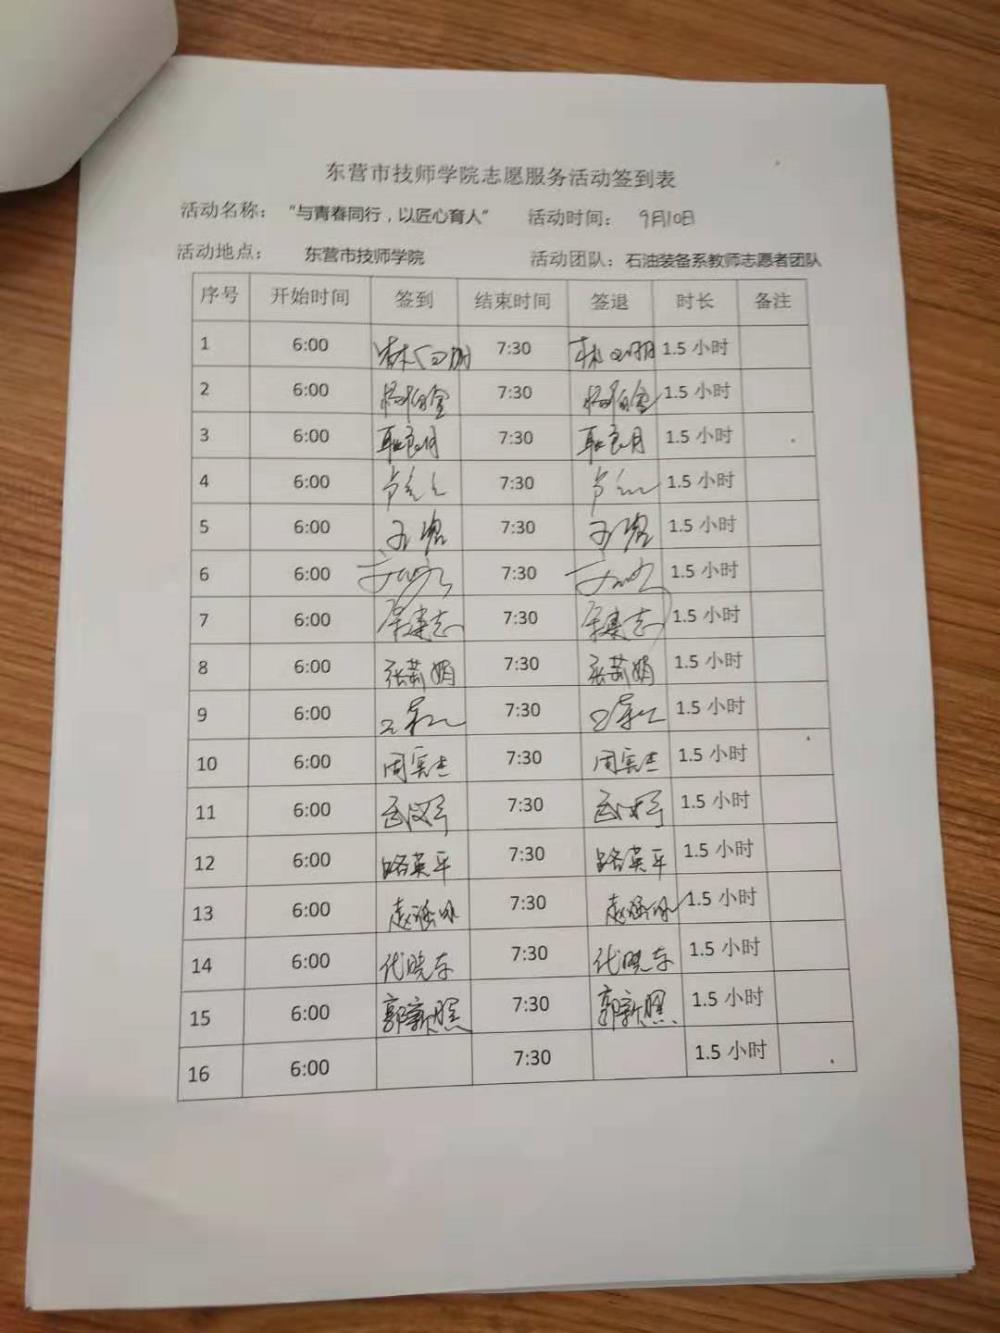 东营市技师学院志愿服务活动签到表
活动名称： “与青春同行，以匠心育人” 活动时间： 9月10日
活动地点： 东营市技师学院 活动团队：石油装备系教师志愿者团队
序号 开始时间 签到 结束时间 签退 时长 备注
1 6:00 7:30 1.5 小时
2 6:00 7:30 1.5 小时
3 6:00 耿良月 7:30 耿良月 1.5 小时
4 6:00 7:30 1.5 小时
5 6:00 7:30 1.5 小时
6 6:00 7:30 1.5 小时
7 6:00 7:30 1.5 小时
8 6:00 张莉娟 7:30 张莉娟 1.5 小时
9 6:00 7:30 1.5 小时
10 6:00 周宪杰 7:30 周宪杰 1.5 小时
11 6:00 7:30 1.5 小时
12 6:00 路英平 7:30 路英平 1.5 小时
13 6:00 7:30 1.5 小时
14 6:00 代晓东 7:30 代晓东 1.5 小时
15 6:00 郭新照 7:30 郭新照 1.5 小时
16 6:00 7:30 1.5 小时